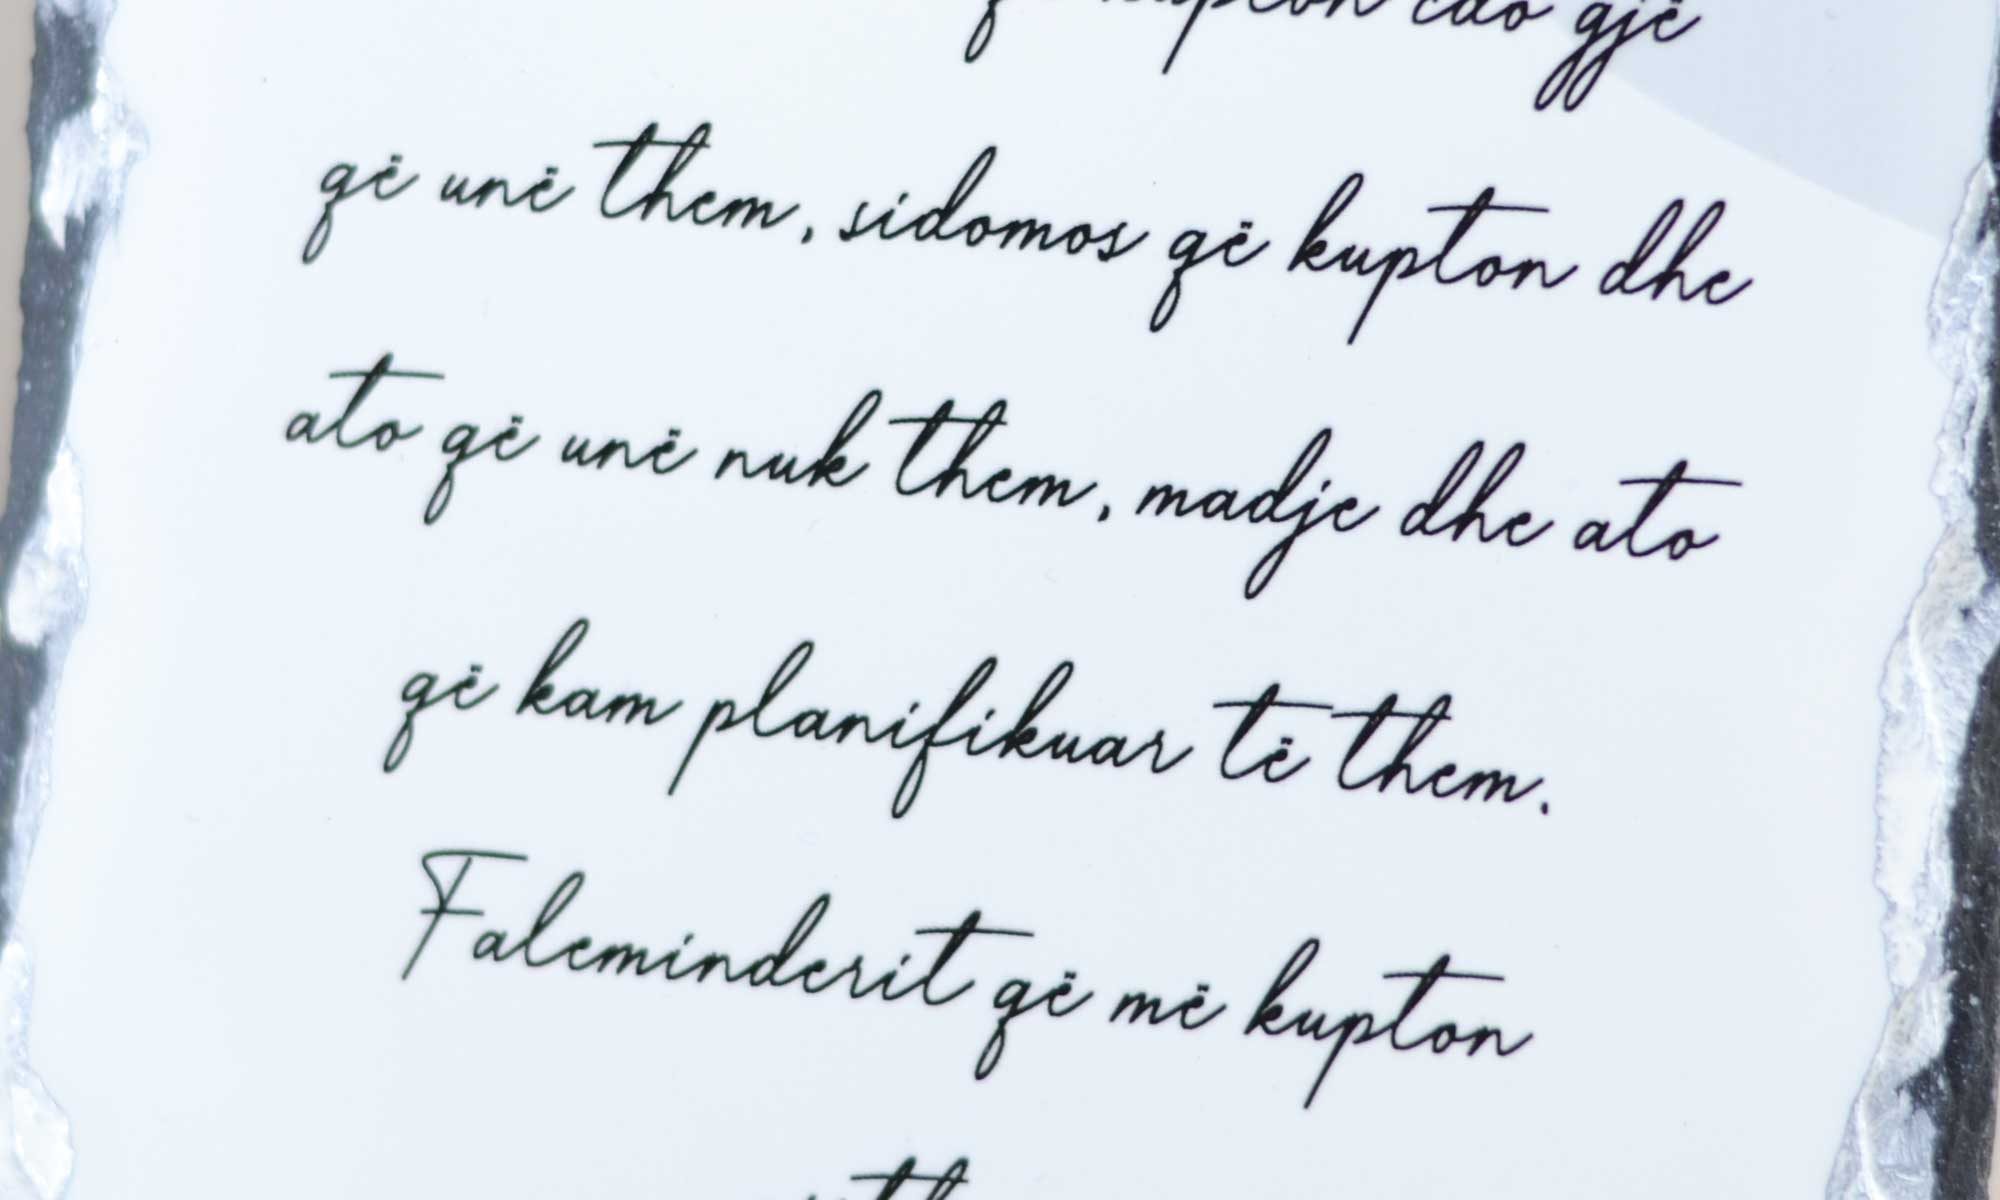 që kupton cdo gjë
që unë them, sidomos që kupton dhe
ato që unë nuk them, madje dhe ato
që kam planifikuar të them.
Faleminderit që më kupton